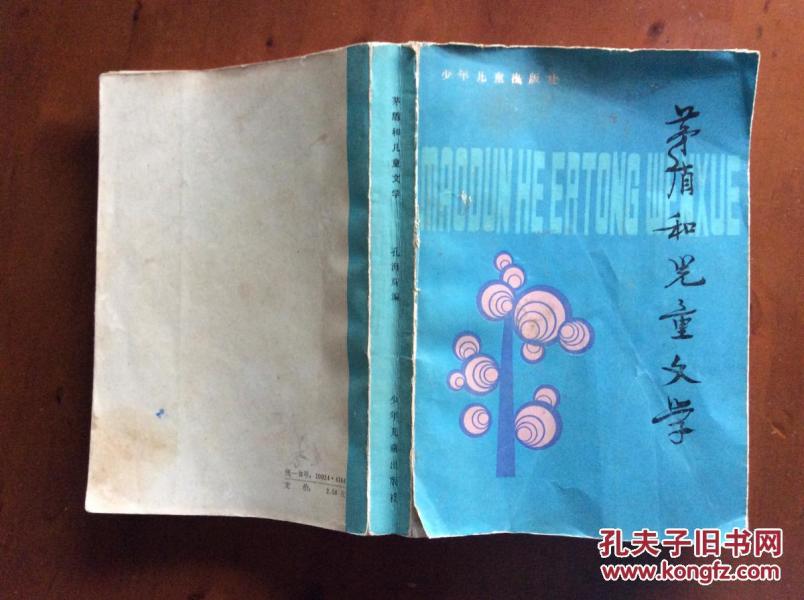 少年儿童出版社
茅盾和儿童文学
MAODUN HE ERTONG WENXUE
茅盾和儿童文学
孔海珠编
少年儿童出版社
统一书号：10024·
定价：2.50元
孔夫子旧书网
www.kongfz.com